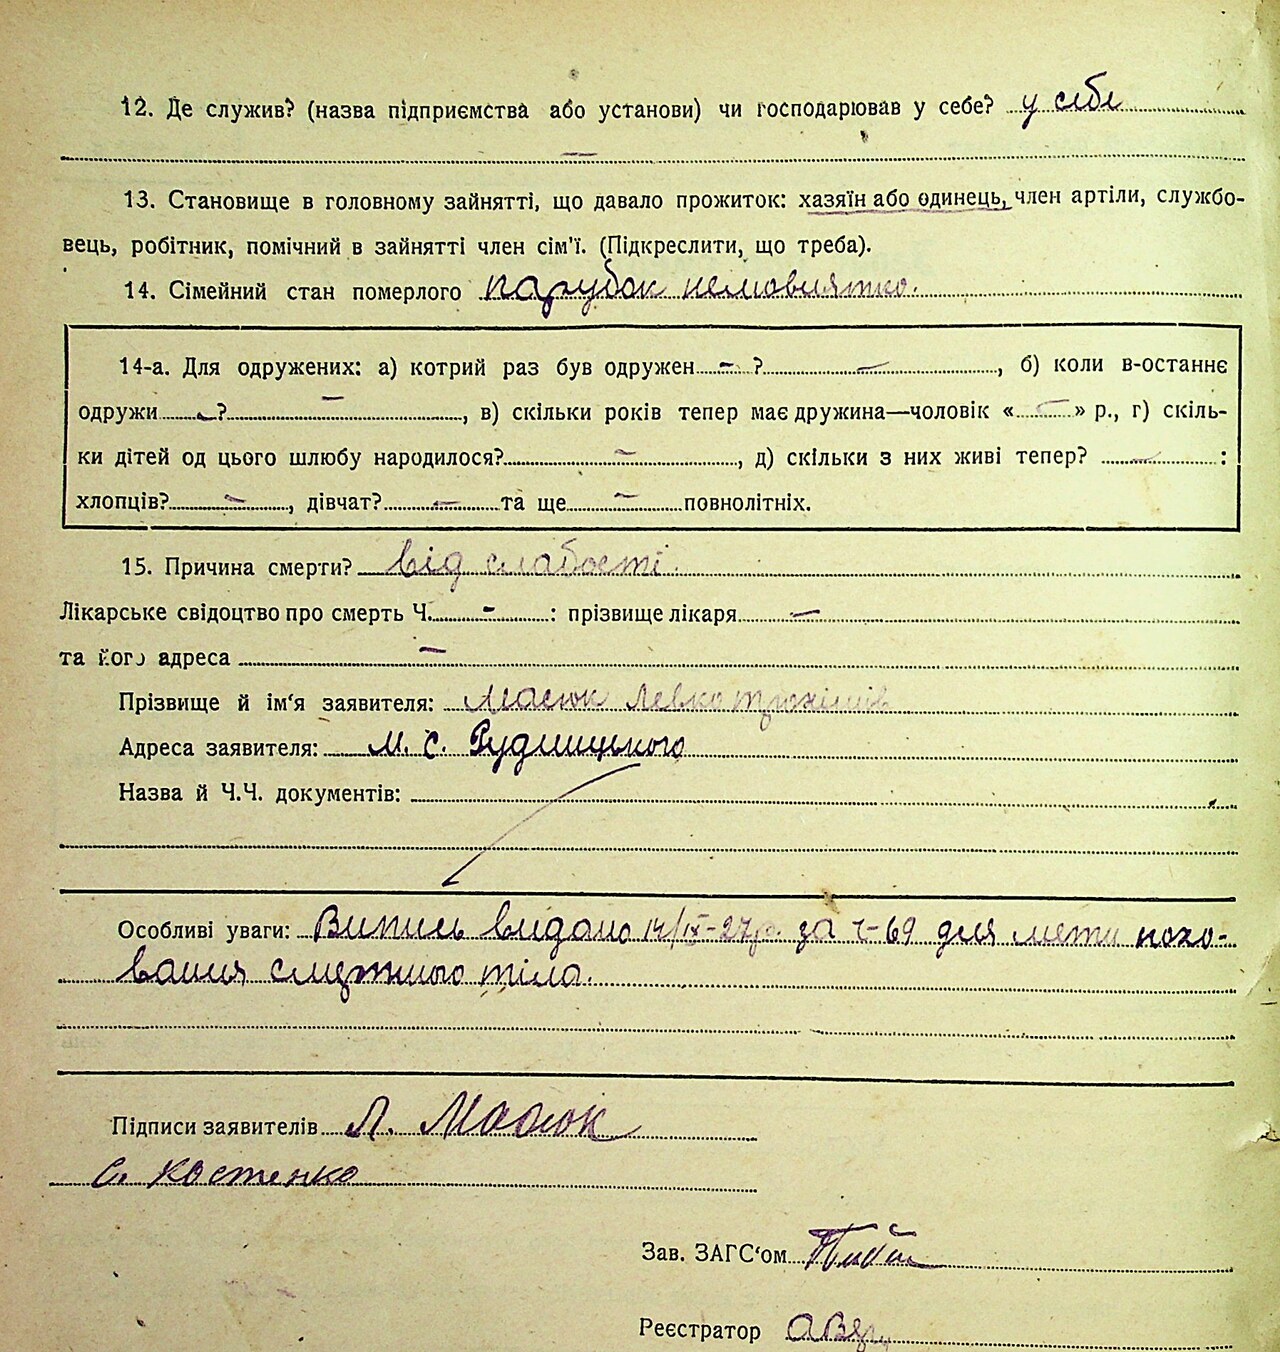 12. Де служив? (назва підприємства або установи) чи господарював у себе? у себе
—
13. Становище в головному зайнятті, що давало прожиток: хазяїн або одинець, член артіли, службо-
вець, робітник, помічний в зайнятті член сім'ї. (Підкреслити, що треба).
14. Сімейний стан померлого парубок немовлятко.
14-а. Для одружених: а) котрий раз був одружен - ? —, б) коли в-останнє
одружи - ? —, в) скільки років тепер має дружина—чоловік « - » р., г) скіль-
ки дітей од цього шлюбу народилося? —, д) скільки з них живі тепер? — :
хлопців? —, дівчат? — та ще — повнолітніх.
15. Причина смерти? від слабості.
Лікарське свідоцтво про смерть Ч. - : прізвище лікаря —
та його адреса —
Прізвище й ім'я заявителя: Масюк Левко
Адреса заявителя: м. с. Рудницького
Назва й Ч.Ч. документів:
Особливі уваги: Випись видано 14/IX-27р. за ч-69 для мети похо-
вання смертного тіла.
Підписи заявителів Л. Масюк
С. Костенко
Зав. ЗАГС'ом
Реєстратор